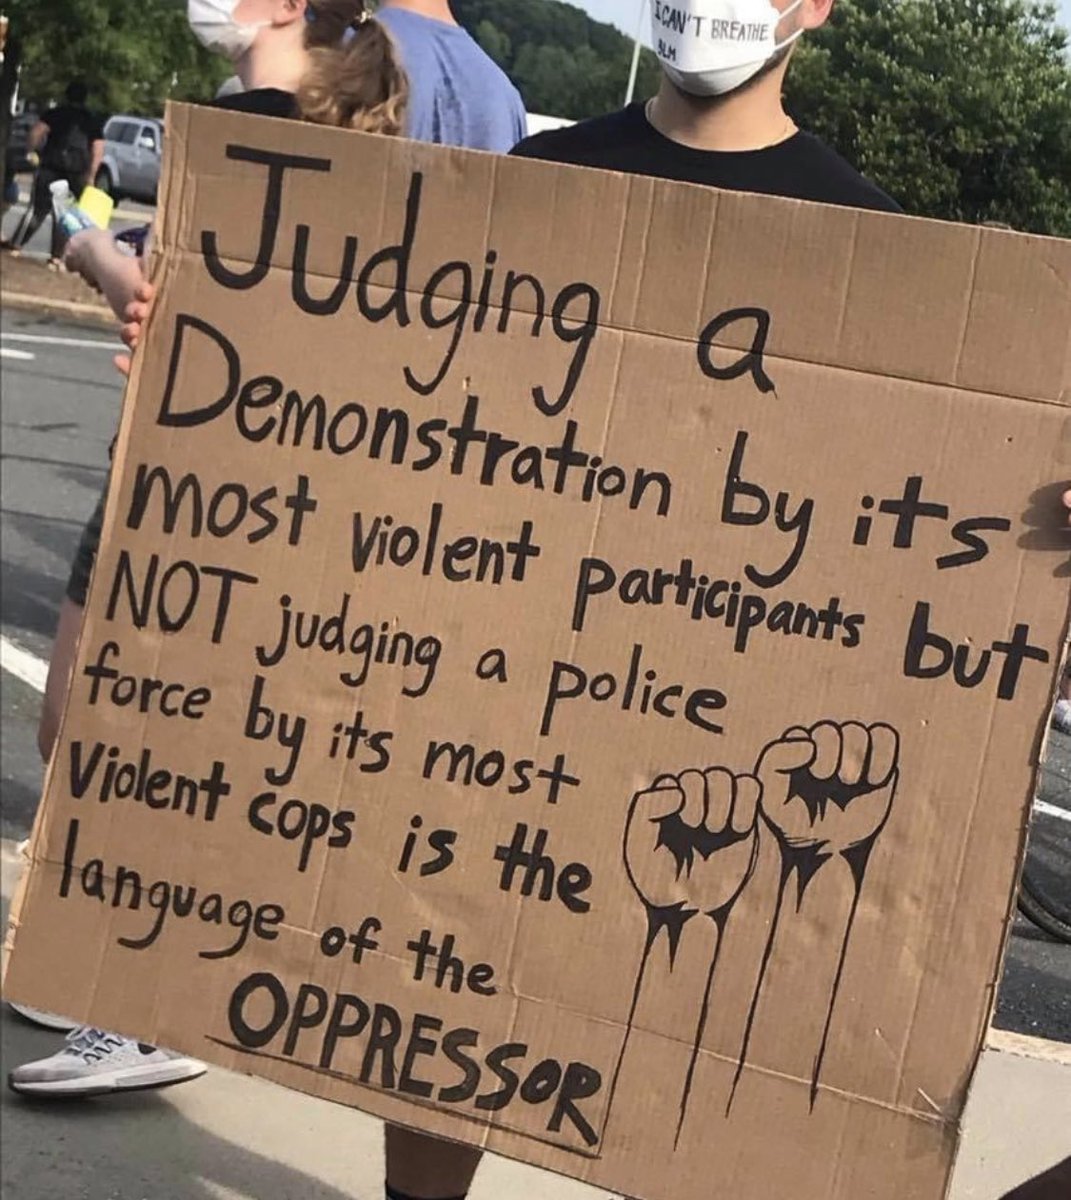 I CAN'T BREATHE
BLM
Judging a
Demonstration by its
most violent participants but
NOT judging a police
force by its most
violent cops is the
language of the
OPPRESSOR